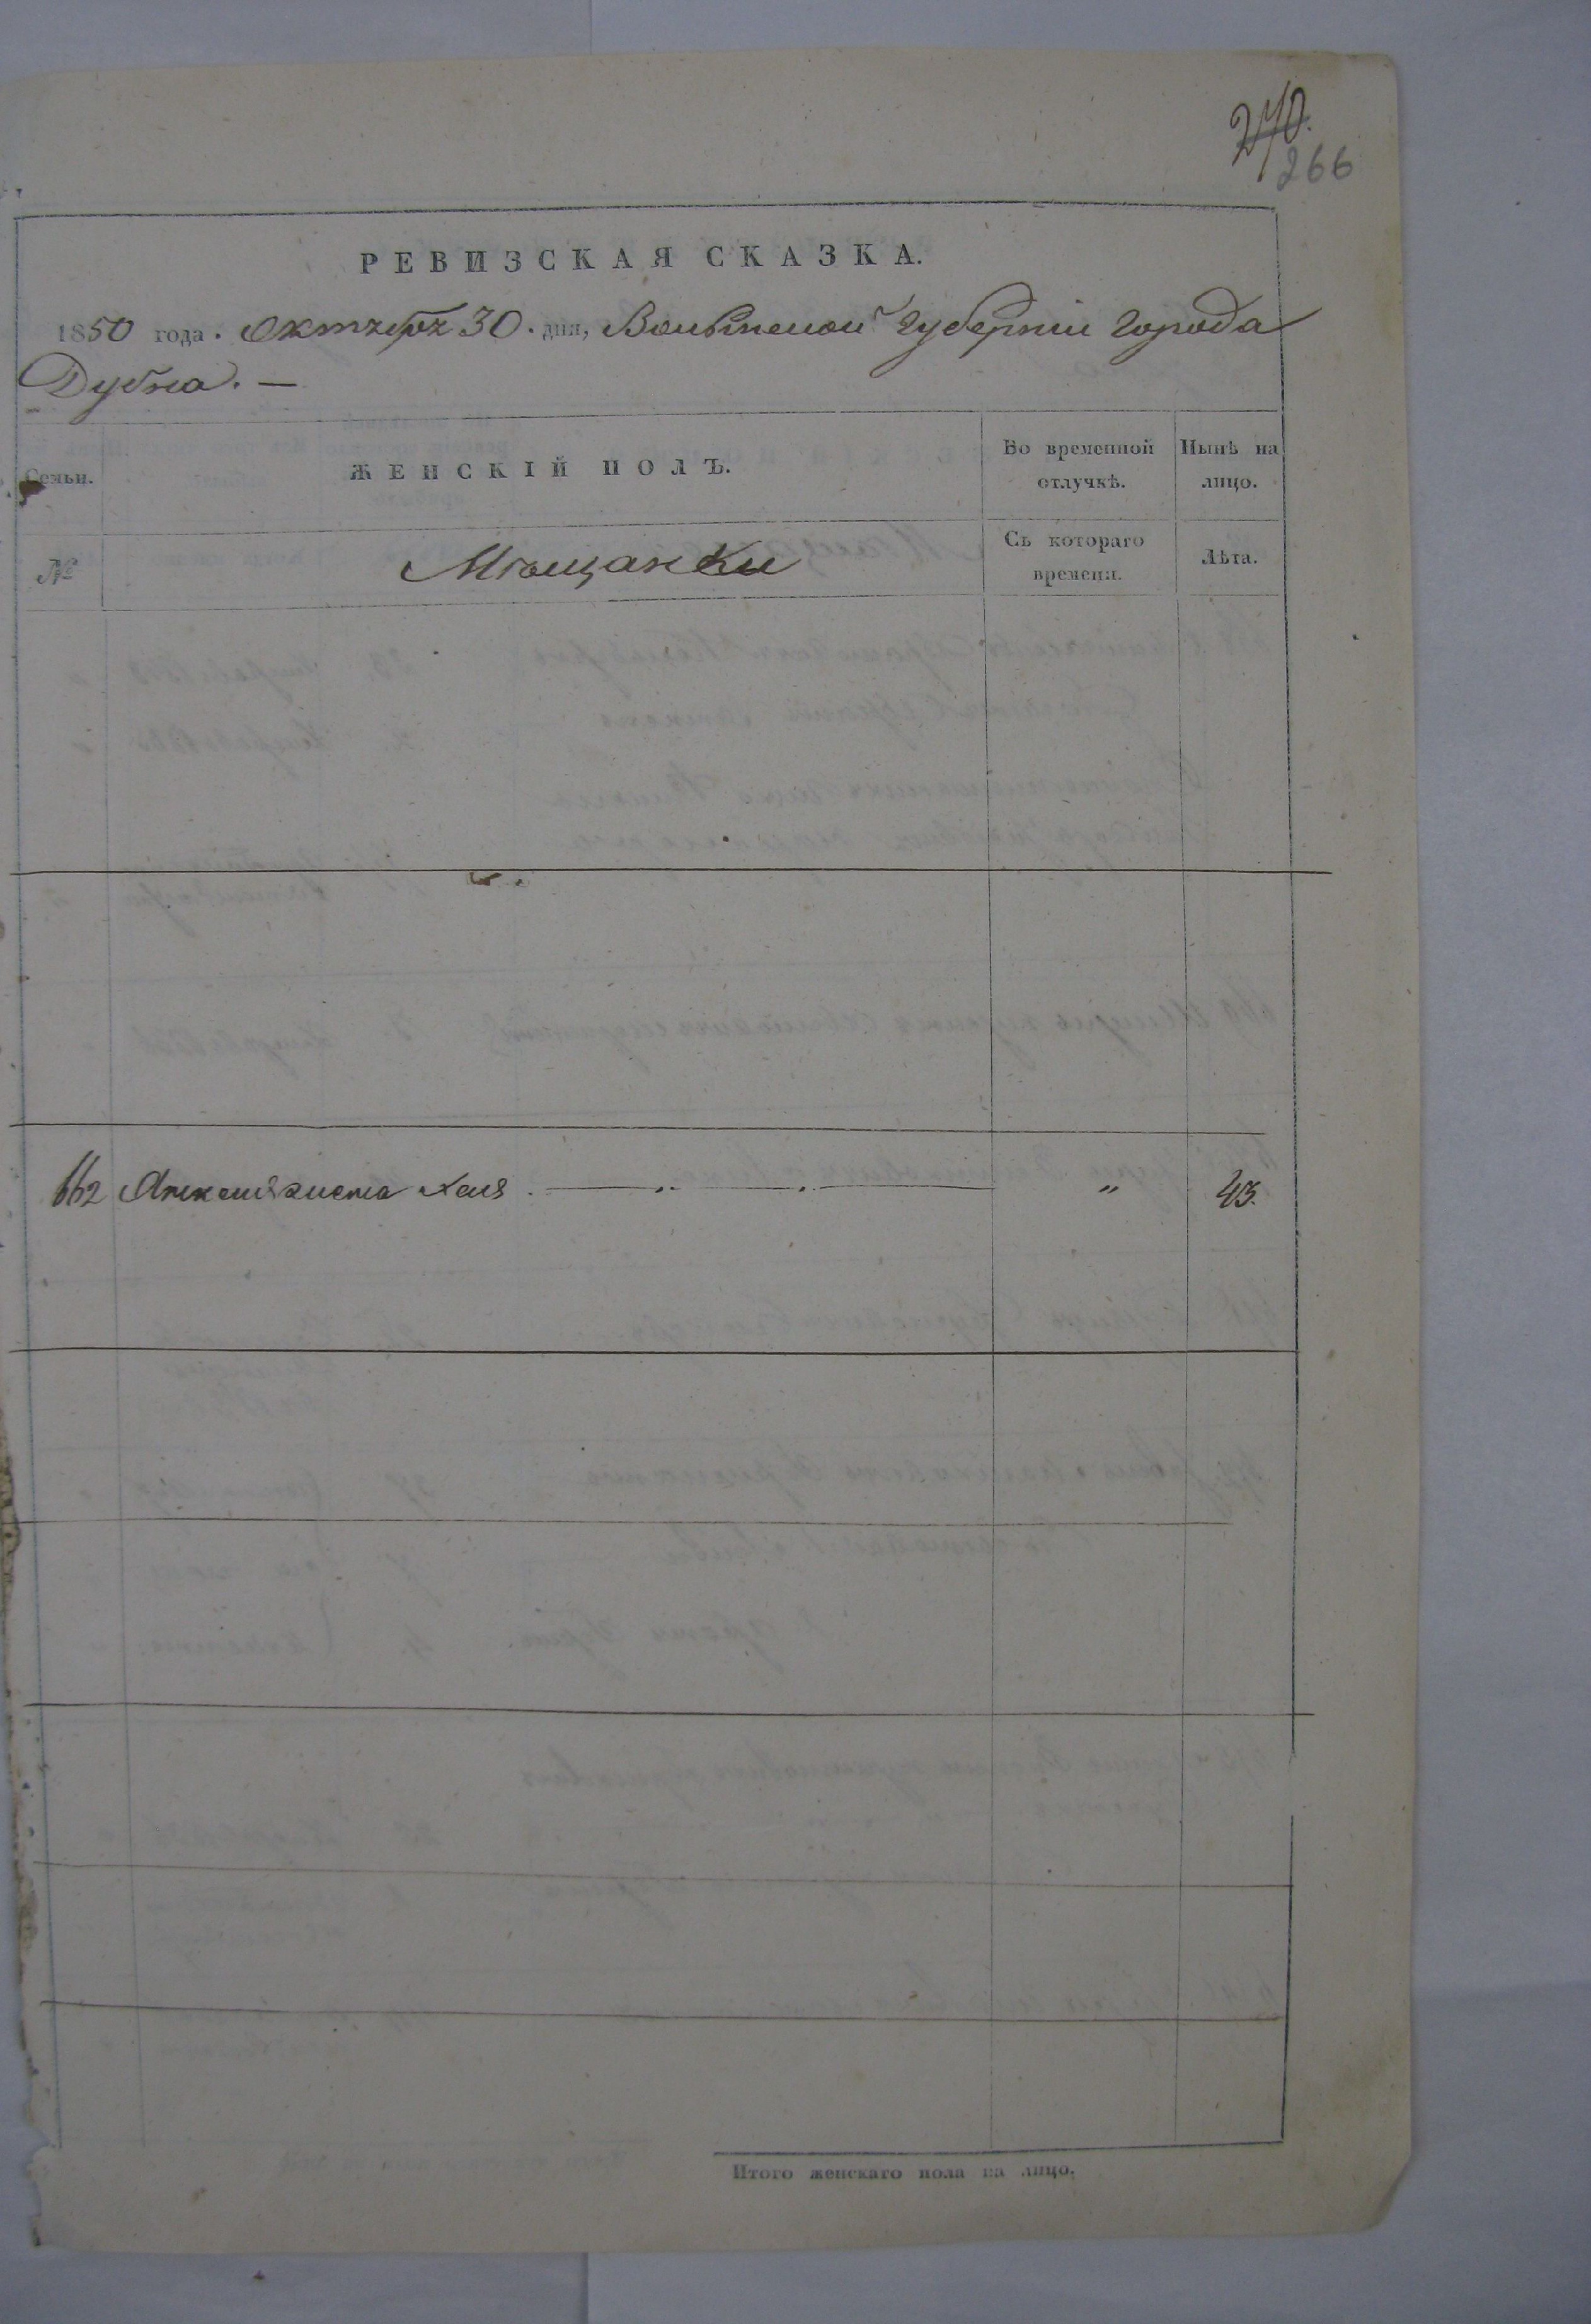 270.
266
РЕВИЗСКАЯ СКАЗКА.
1850 года. Октября 30. дня, Волынской Губерніи Города
Дубна. —
Семьи.
ЖЕНСКІЙ ПОЛЪ.
Во временной
отлучкѣ.
Нынѣ на
лицо.
№
Мѣщанки
Съ котораго
времени.
Лѣта.
662 жена Хая " 43.
Итого женскаго пола на лицо.